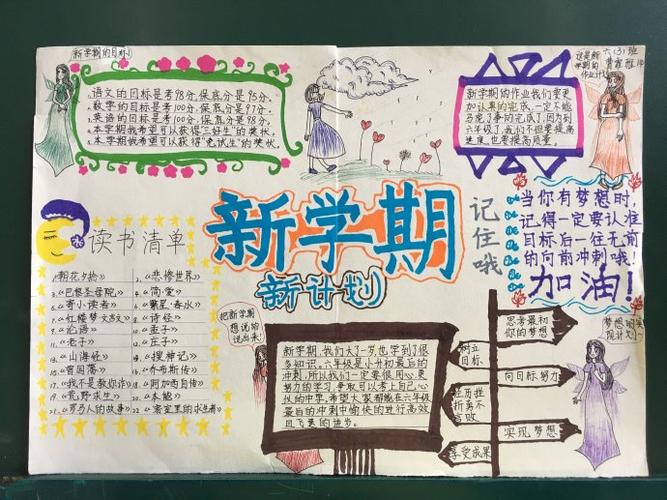 新学期的目标
语文的目标是考98分,保底分是95分。
数学的目标是考100分,保底分是97分。
英语的目标是考100分,保底分是98分。
本学期我希望可以获得"三好生"的奖状。
本学期我希望可以获得"免试生"的奖状。
这是新
学期的
作业计划
六(3)班
新学期的作业我们要更
加认真的完成,一定不能
马虎了事的完成了,因为到
六年级了,我们不但要提高
速度,也要提高质量。
新学期
新计划
记住哦
当你有梦想时,
记得一定要认准
目标后一往无前
的向前冲刺哦!
加油!
读书清单
1.朝花夕拾》
2.《悲惨世界》
3.《巴黎圣母院》
4.《简爱》
5.《寄小读者》
6.《繁星·春水》
7.《红楼梦》
8.《诗经》
9.《论语》
10.《孟子》
11.《老子》
12.《庄子》
13.《山海经》
14.《搜神记》
15.《曾国藩》
16.《乔布斯传》
17.《我不是教你诈》
18.《阿加西自传》
19.《荒野求生》
20.《本能》
21.《罗马人的故事》
22.《密室里的求生者》
把新学期
想说的
说出来!
新学期,我们大了一岁也学到了很
多知识。六年级是小升初最后的
冲刺,所以我们一定要很用心,更
努力的学习,争取可以考上自己心
仪的中学,希望大家都能在六年级
最后的冲刺中愉快的进行高效
且飞奔的进步。
思考最初
你的梦想
树立
目标
向目标努力
经历挫
折努不
言败
实现梦想
享受成果
梦想的实
现计划~